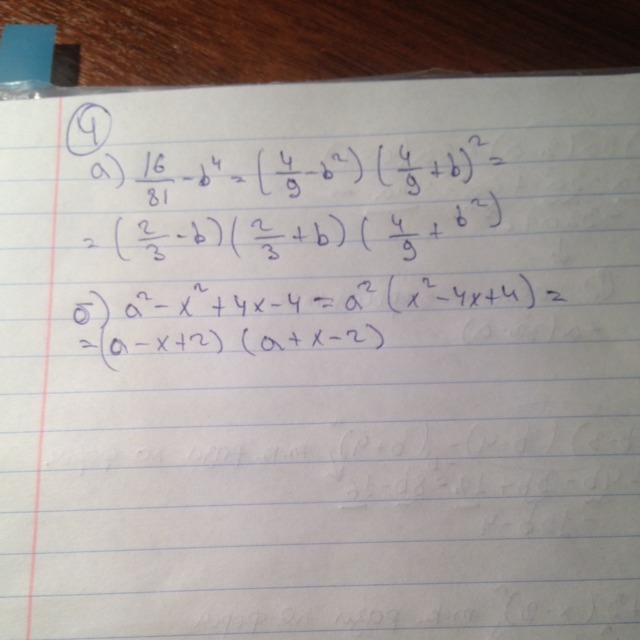 4
а) 16/81 - b⁴ = (4/9 - b²) (4/9 + b)² =
= (2/3 - b) (2/3 + b) (4/9 + b²)
б) a² - x² + 4x - 4 = a² (x² - 4x + 4) =
= (a - x + 2) (a + x - 2)